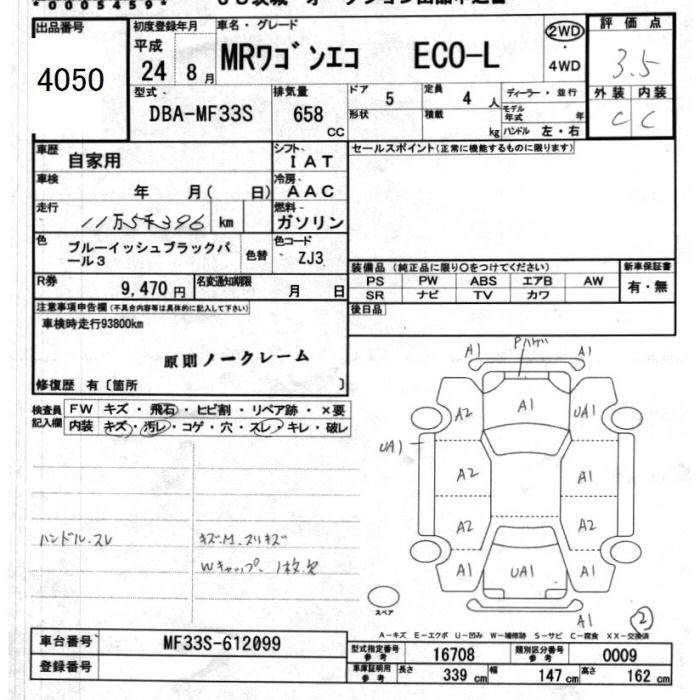 *0005459*
出品番号
4050
初度登録年月
平成
24年 8月
車名・グレード
MRワゴンエコ ECO-L
2WD
・
4WD
評価点
3.5
外装 内装
C C
型式
DBA-MF33S
排気量
658 CC
ドア 5
形状
定員 4 人
積載 kg
ディーラー・並行
モデル年式 年
ハンドル 左・右
車歴 自家用
シフト IAT
車検 年 月( 日)
冷房 AAC
走行 11万5千396 km
燃料 ガソリン
色 ブルーイッシュブラックパール3
色替
色コード ZJ3
R券 9,470円
名変通知期限 月 日
セールスポイント(正常に機能するものに限ります)
装備品 (純正品に限り○をつけてください)
PS PW ABS エアB AW
SR ナビ TV カワ
新車保証書
有・無
後日品
注意事項申告欄(不具合内容等は具体的に記入して下さい)
車検時走行93800km
原則ノークレーム
修復歴 有〔箇所 〕
検査員記入欄
FW キズ・飛石・ヒビ割・リペア跡・×要
内装 キズ・汚レ・コゲ・穴・スレ・キレ・破レ
ハンドル.スレ
キズM.スリキズ
Wキャップ、1枚欠
A1 Pハゲ A1
A2 A1 UA1
UA1
A2 A1
A2 A2
A1 UA1 A1
スペア
A1
②
A-キズ E-エクボ U-凹み W-補修跡 S-サビ C-腐食 XX-交換済
車台番号 MF33S-612099
登録番号
型式指定番号参考 16708
類別区分番号参考 0009
車庫証明用参考 長さ 339 cm 幅 147 cm 高さ 162 cm